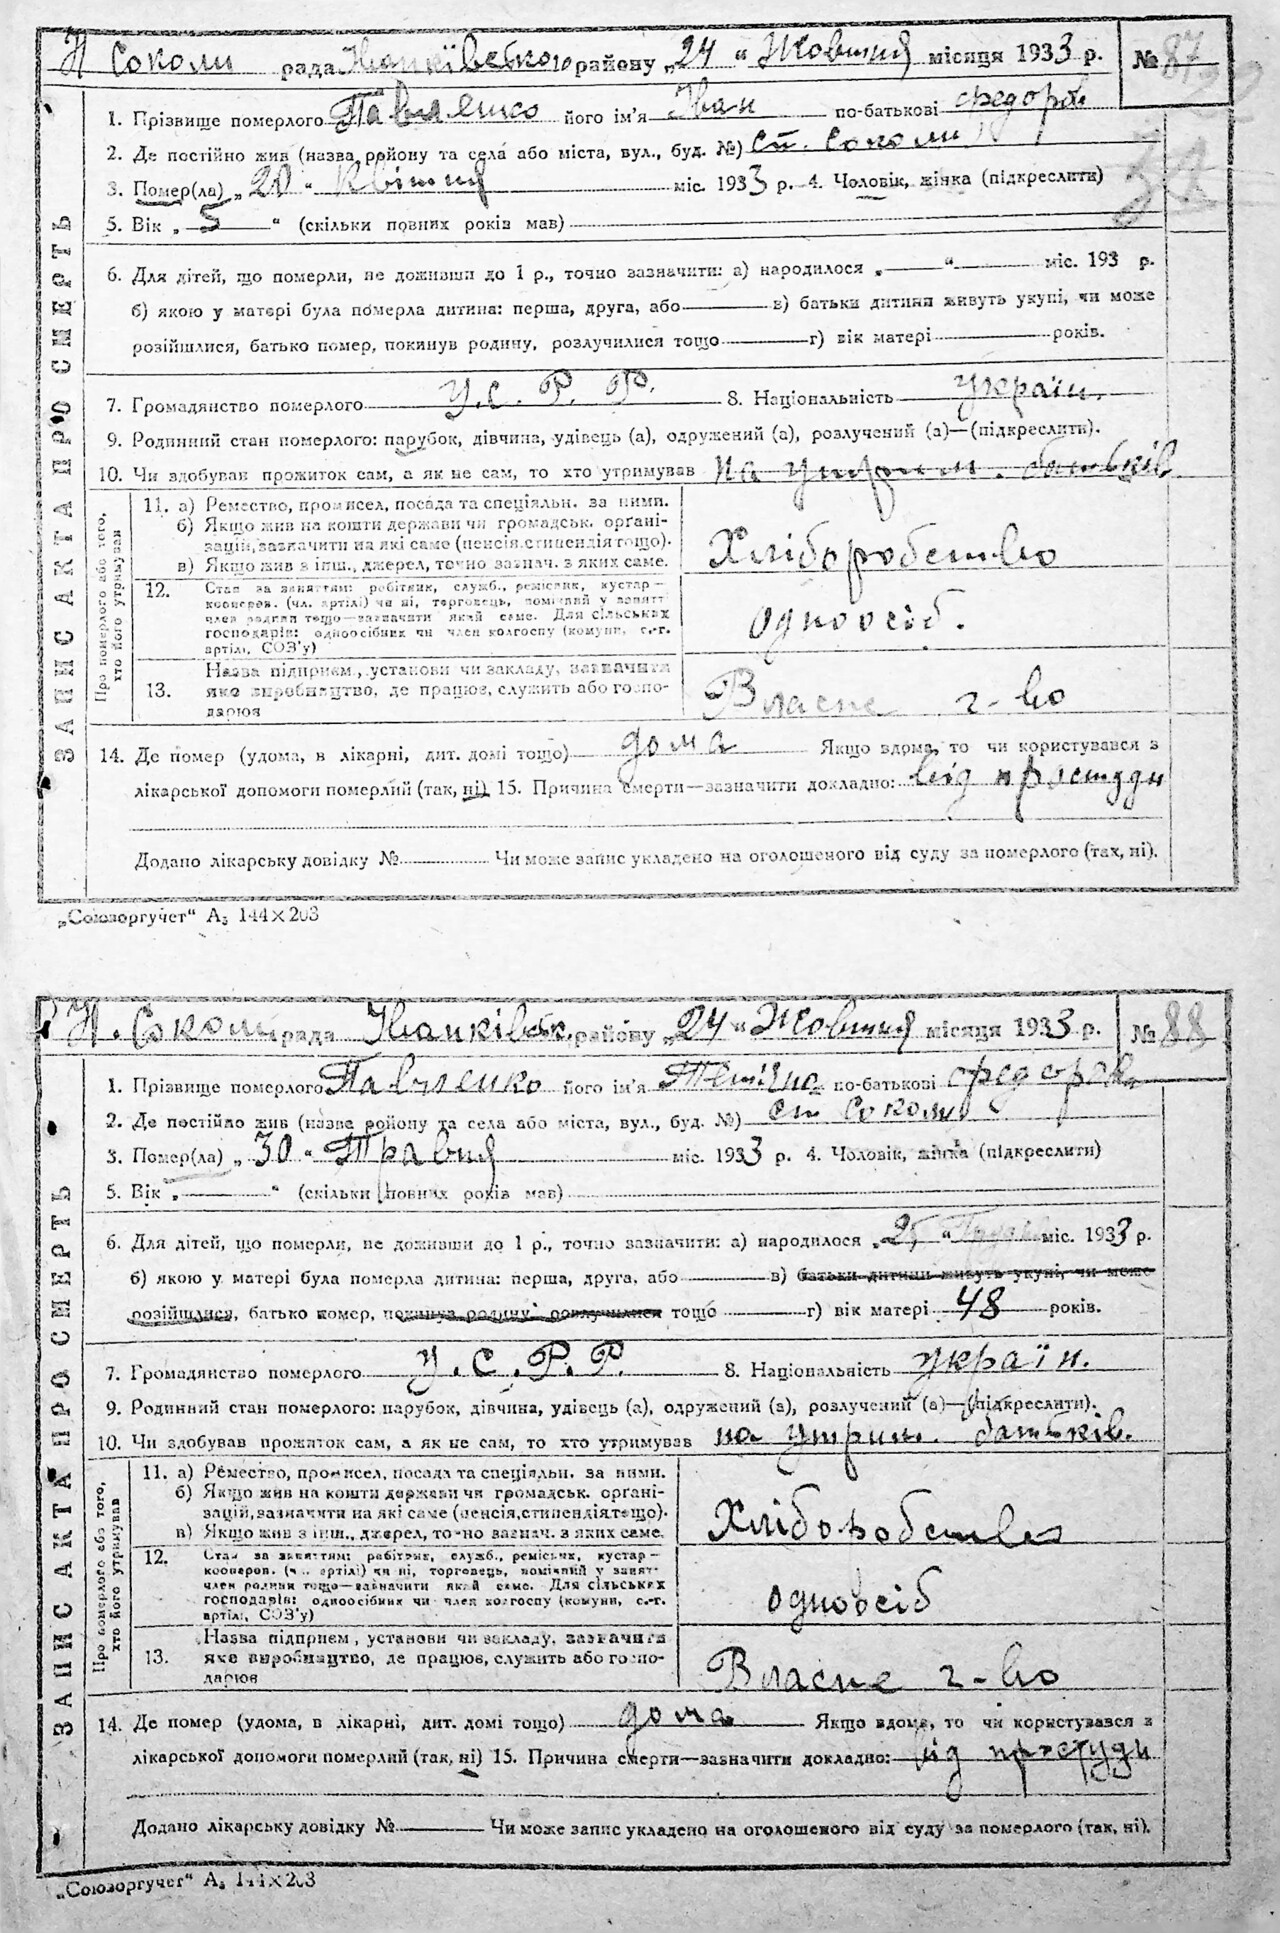 Н Соколи рада Іванківського району „24 “ Жовтня місяця 1933 р. № 87
1. Прізвище померлого Павленко його ім'я Іван по-батькові Федоров
2. Де постійно жив (назва району та села або міста, вул., буд. №) ст. Соколи
3. Помер(ла) „ 20 “ Квітня міс. 1933 р. 4. Чоловік, жінка (підкреслити)
5. Вік „ 5 “ (скільки повних років мав)
6. Для дітей, що померли, не доживши до 1 р., точно зазначити: а) народилося „ “ міс. 193 р.
б) якою у матері була померла дитина: перша, друга, або в) батьки дитини живуть укупі, чи може
розійшлися, батько помер, покинув родину, розлучилися тощо г) вік матері років.
7. Громадянство померлого У.С.Р.Р. 8. Національність україн.
9. Родинний стан померлого: парубок, дівчина, удівець (а), одружений (а), розлучений (а)—(підкреслити).
10. Чи здобував прожиток сам, а як не сам, то хто утримував на утрим. батьків
ЗАПИС АКТА ПРО СМЕРТЬ
Про померлого або того, хто його утримував
11. а) Ремество, промисел, посада та спеціяльн. за ними.
б) Якщо жив на кошти держави чи громадськ. органі-
зацій, зазначити на які саме (пенсія, стипендія тощо).
в) Якщо жив з інш., джерел, точно зазнач. з яких саме.
Хліборобство
12. Стан за заняттям: робітник, служб., ремісник, кустар —
кооперов. (чл. артілі) чи ні, торговець, помічний у занятт
член родини тощо—зазначити який саме. Для сільських
господарів: одноосібник чи член колгоспу (комуни, с.-г.
артілі, СОЗ'у)
одноосіб.
13. Назва підприєм., установи чи закладу, зазначити
яке виробництво, де працює, служить або госпо-
дарює
Власне г-во
14. Де помер (удома, в лікарні, дит. домі тощо) дома Якщо вдома, то чи користувався з
лікарської допомоги померлий (так, ні) 15. Причина смерти—зазначити докладно: від простуди
Додано лікарську довідку № Чи може запис укладено на оголошеного від суду за померлого (так, ні).
„Союзоргучет“ А5 144×203
Н. Соколи рада Іванківськ. району „24 “ Жовтня місяця 1933 р. № 88
1. Прізвище померлого Павленко його ім'я Тетяна по-батькові Федоров
2. Де постійно жив (назва району та села або міста, вул., буд. №) ст Соколи
3. Помер(ла) „ 30 “ Травня міс. 1933 р. 4. Чоловік, жінка (підкреслити)
5. Вік „ “ (скільки повних років мав)
6. Для дітей, що померли, не доживши до 1 р., точно зазначити: а) народилося „ 25 “ Грудня міс. 1933 р.
б) якою у матері була померла дитина: перша, друга, або в) батьки дитини живуть укупі, чи може
розійшлися, батько помер, покинув родину, розлучилися тощо г) вік матері 48 років.
7. Громадянство померлого У.С.Р.Р. 8. Національність україн.
9. Родинний стан померлого: парубок, дівчина, удівець (а), одружений (а), розлучений (а)—(підкреслити).
10. Чи здобував прожиток сам, а як не сам, то хто утримував на утрим. батьків.
ЗАПИС АКТА ПРО СМЕРТЬ
Про померлого або того, хто його утримував
11. а) Ремество, промисел, посада та спеціяльн. за ними.
б) Якщо жив на кошти держави чи громадськ. органі-
зацій, зазначити на які саме (пенсія, стипендія тощо).
в) Якщо жив з інш., джерел, точно зазнач. з яких саме.
Хліборобство
12. Стан за заняттям: робітник, служб., ремісник, кустар —
кооперов. (чл. артілі) чи ні, торговець, помічний у занятт
член родини тощо—зазначити який саме. Для сільських
господарів: одноосібник чи член колгоспу (комуни, с.-г.
артілі, СОЗ'у)
одноосіб
13. Назва підприєм., установи чи закладу, зазначити
яке виробництво, де працює, служить або госпо-
дарює
Власне г-во
14. Де помер (удома, в лікарні, дит. домі тощо) дома Якщо вдома, то чи користувався з
лікарської допомоги померлий (так, ні) 15. Причина смерти—зазначити докладно: від простуди
Додано лікарську довідку № Чи може запис укладено на оголошеного від суду за померлого (так, ні).
„Союзоргучет“ А5 144×203